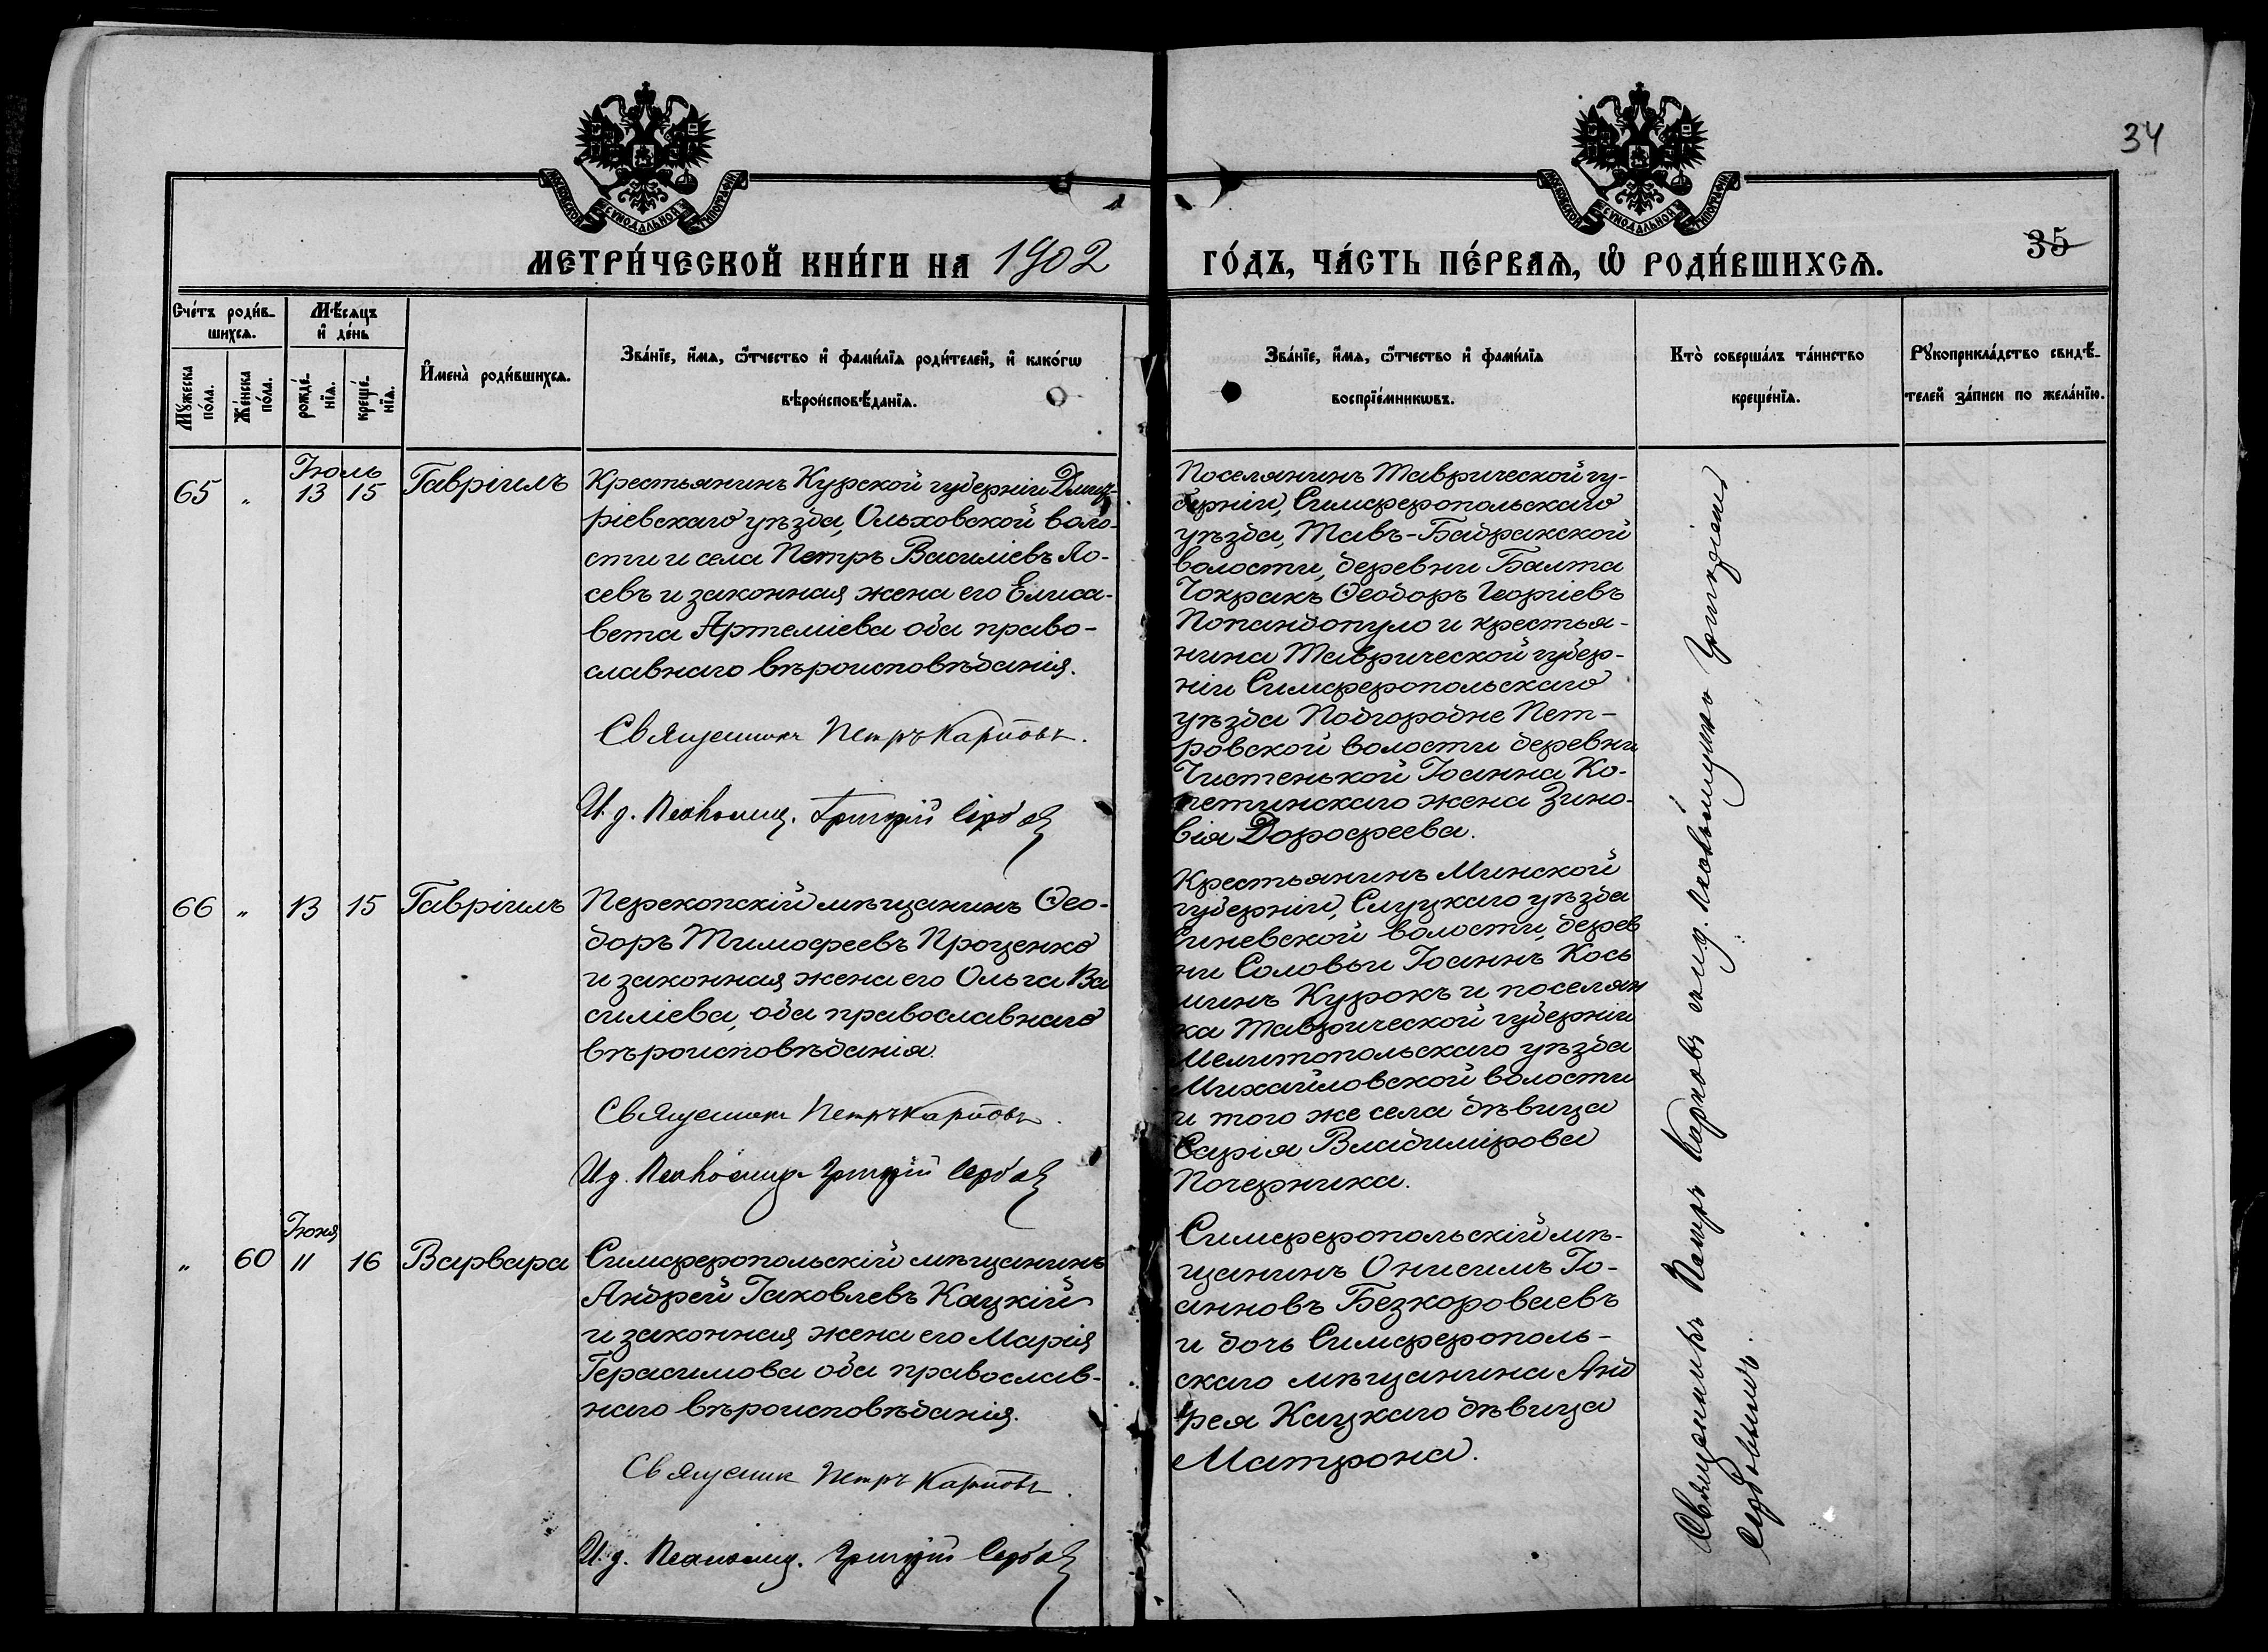 34
35
МОСКОВСКОЙ СѴНОДАЛЬНОЙ ТИПОГРАФІИ
МОСКОВСКОЙ СѴНОДАЛЬНОЙ ТИПОГРАФІИ
МЕТРИ́ЧЕСКОЙ КНИ́ГИ НА 1902
ГО́ДЪ, ЧА́СТЬ ПЕ́РВАѦ, Ѡ҆ РОДИ́ВШИХСѦ.
Сче́тъ роди́в-
шихсѧ.
Мѣ́сѧцъ
и҆ де́нь
Мꙋ́жеска
по́ла.
Же́нска
по́ла.
рожде́-
нїѧ.
креще́-
нїѧ.
И҆мена̀ роди́вшихсѧ.
Зва́нїе, и҆́мѧ, ѻ҆́тчество и҆ фами́лїѧ роди́телей, и҆ како́гѡ
вѣроисповѣ́данїѧ.
Зва́нїе, и҆́мѧ, ѻ҆́тчество и҆ фами́лїѧ
воспрїе́мникѡвъ.
Кто̀ соверша́лъ та́инство
креще́нїѧ.
Рꙋкоприкла́дство свидѣ́-
телей за́писи по жела́нїю.
Іюль
65 „ 13 15 Гавріилъ
Крестьянинъ Курской губерніи Дмит-
ріевскаго уѣзда, Ольховской воло-
сти и села Петръ Василіевъ Ло-
севъ и законная жена его Елиса-
вета Артеміева оба право-
славнаго вѣроисповѣданія.
Священникъ Петръ Карповъ.
И. д. Псаломщ. Григорій Серб
Поселянинъ Таврической гу-
берніи, Симферопольскаго
уѣзда, Тавъ-Бадракской
волости, деревни Балта
Чокракъ Ѳеодоръ Георгіевъ
Попандопуло и крестья-
нина Таврической губер-
ніи Симферопольскаго
уѣзда Подгородне Пет-
ровской волости деревни
Чистенькой Іоанна Ко-
петинскаго жена Зино-
вія Дорофеева.
66 „ 13 15 Гавріилъ
Перекопскій мѣщанинъ Ѳео-
доръ Тимофеевъ Проценко
и законная жена его Ольга Ва
силіева, оба православнаго
вѣроисповѣданія.
Священникъ Петръ Карповъ.
И д. Псаломщ. Григорій Серб
Крестьянинъ Минской
губерніи, Слуцкаго уѣзда
Синевской волости, дерев
ни Соловьи Іоаннъ Кось
минъ Курокъ и поселян
ка Таврической губерніи
Мелитопольскаго уѣзда
Михайловской волости
и того же села дѣвица
Владимірова
Почерника.
Іюня
„ 60 11 16 Варвара
Симферопольскій мѣщанинъ
Андрей Іаковлевъ Кацкій
и законная жена его Марія
Герасимова оба православ-
наго вѣроисповѣданія.
Священникъ Петръ Карповъ.
И. д. Псаломщ. Григорій Серб
Симферопольскій мѣ-
щанинъ Онисимъ Іо-
анновъ Безкороваевъ
и дочь Симферополь-
скаго мѣщанина Анд
рея Кацкаго дѣвица
Матрона.
Священникъ Петръ Карповъ съ и. д. псаломщика Григоріемъ